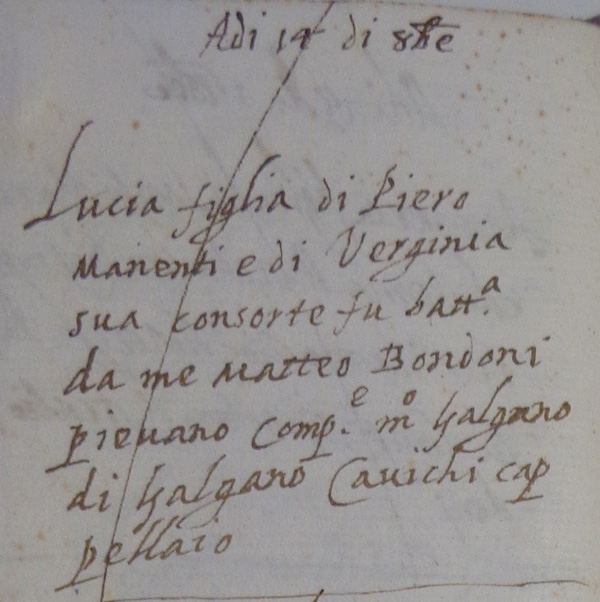 Adi 14 di 8bre
Lucia figlia di Piero
Manenti e di Verginia
sua consorte fu batt.a
da me Matteo Bondoni
pievano Comp.e mo Galgano
di Galgano Cavichi cap
pellaio